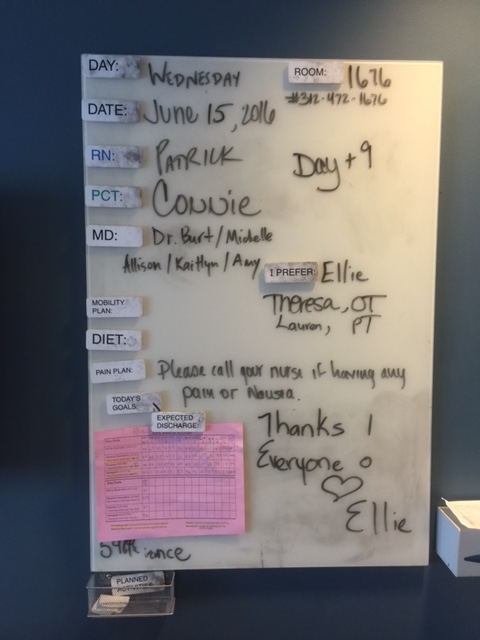 DAY: WEDNESDAY
ROOM: 1676
#312-472-1676
DATE: June 15, 2016
RN: PATRICK
Day + 9
PCT: Connie
MD: Dr. Burt/Michelle
Allison/Kaitlyn/Amy
I PREFER: Ellie
Theresa, OT
Lauren, PT
MOBILITY PLAN:
DIET:
PAIN PLAN: Please call your nurse if having any
pain or Nausia.
TODAY'S GOALS:
EXPECTED DISCHARGE:
Thanks !
Everyone
Ellie
PLANNED